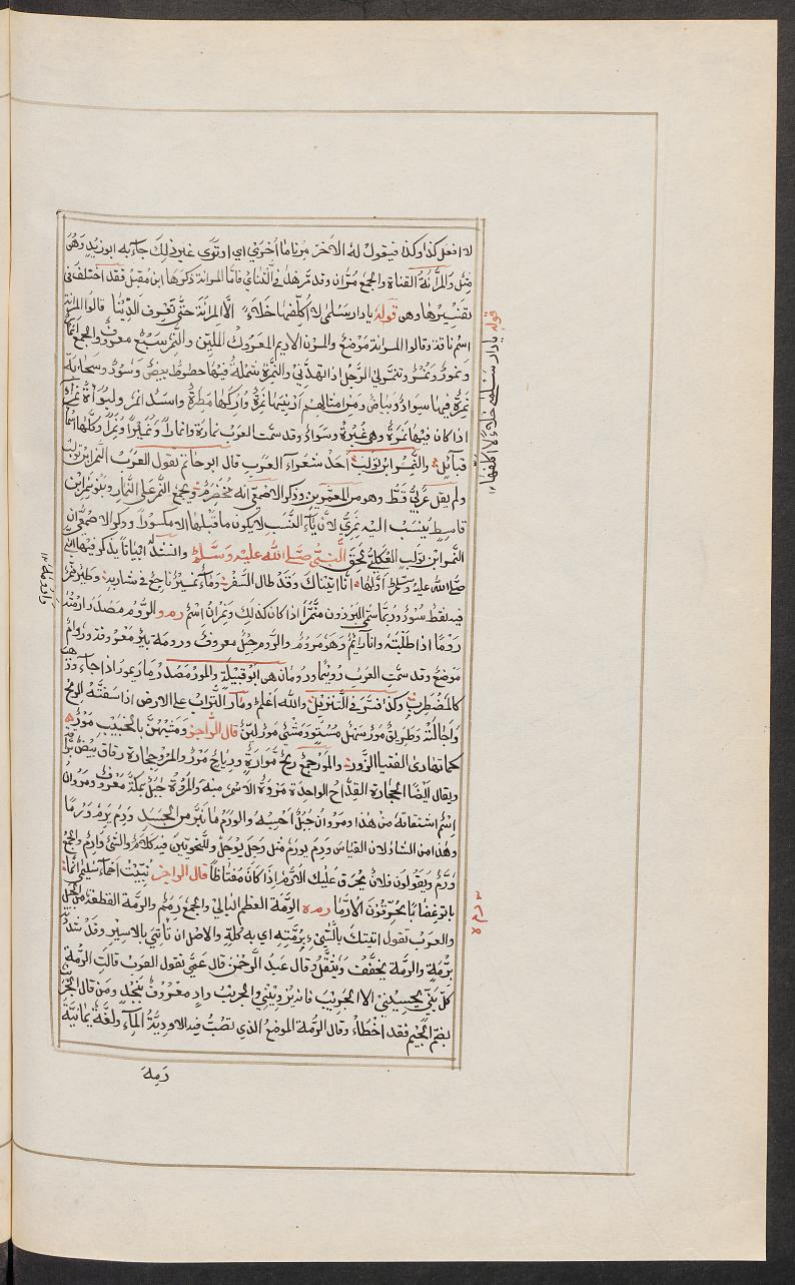 لا افعل كذا وكذا فيقول له الاخر مرنا ما اخرى اي او ترى غير ذلك جاء به ابو زيد وهن
مثل والمرانة القناة والجمع مران وقد مر هذا في الثنائي فاما المرانة ذكرها ابن مقبل فقد اختلف في
تفسيرها وهن قوله يا دار سلمى خلاء لا اكلفها الا المرانة حتى تعرف الدينا قالوا المرانة
اسم ناقة وقالوا المرانة موضع والمرن الاديم المعروك الملين والنمر سبع معروف والجمع انمار
ونمور ونمر وتنمر لي الرجل اذا تهددني والنمرة شملة فيها خطوط بيض وسود وسحابة
نمرة فيها سواد وبياض ومن امثالهم ارنيها نمرة اركها مطرة واسد انمر ولبوأة نمراء
اذا كان فيها نمرة وهي غبرة وسواد وقد سمت العرب نمارة وانمارا ونميرا ونمرا وكلها اسماء
قبائل والنمر ابن تولب احد شعراء العرب قال ابو حاتم تقول العرب النمر ابن تولب
ولم يقل عربي قط وهو من المعمرين وذكر الاصمعي انه مخضرم ويجمع النمر على النمار وبنو نمر ابن
قاسط ينسب اليه نمري لان ياء النسب لا يكون ما قبلها الا مكسورا وذكر الاصمعي ان
النمر ابن تولب العكلي لحق النبي صلى الله عليه وسلم وانشده ابياتا يذكر فيها النبي
صلى الله عليه وسلم اولها انا اتيناك وقد طال السفر وماء نمير ناجع في شاربه وطير نمر
فيه نقط سود وربما سمي البرذون منمرا اذا كان كذلك ونمران اسم رمو الروم مصدر رمته
روما اذا طلبته وانا رائم وهو مروم والروم جيل معروف ورومة بئر معروفة ورام
موضع وقد سمت العرب رويما ورومان هن ابو قبيلة والمور مصدر مار يمور اذا جاء وذهب
كالمضطرب وكذا فسر في التنزيل والله اعلم ومار التراب على الارض اذا سفته الريح
واجالته وطريق مور سهل مستو ومشي مور لين قال الراجز ومشيهن بالخبيب مور
كما تهادى الفتيات الزور والمور جمع ريح موارة ورياح مور والمرو حجارة رقاق بيض براقة
ويقال ايضا لحجارة القداح الواحدة مروة الاسم منه والمروة جبل بمكة معروف ومروان
اسم اشتقاقه من هذا ومروان جبل احسبه والورم ما نبر من الجسد ورم يرم ورما
وهذا من الشاذ لان القياس ورم يورم مثل وجل يوجل وللنحويين فيه كلام والشئ وارم والجمع
ورم ويقولون فلان يحرق عليك الارم اذا كان مغتاظا قال الراجز نبئت احماء سليمى انما
باتوا غضابا يحرقون الارما رمه الرمة العظم البالي والجمع رمم والرمة القطعة من الحبل
والعرب تقول اتيتك بالشئ برمته اي به كله والاصل ان تأتي بالاسير وقد شد
برمة والرمة يخفف ويثقل قال عبد الرحمن قال عمي تقول العرب قالت الرمة
كل بني يحسيني الا الجريب فانه يرويني والجريب واد معروف بنجد ومن قال الجريب
بضم الجيم فقد اخطأ وقال الرمة الموضع الذي تصب فيه الاودية الماء ولغة يمانية
رمة
قوله يا دار سلمى خلاء لا اكلفها
رمه